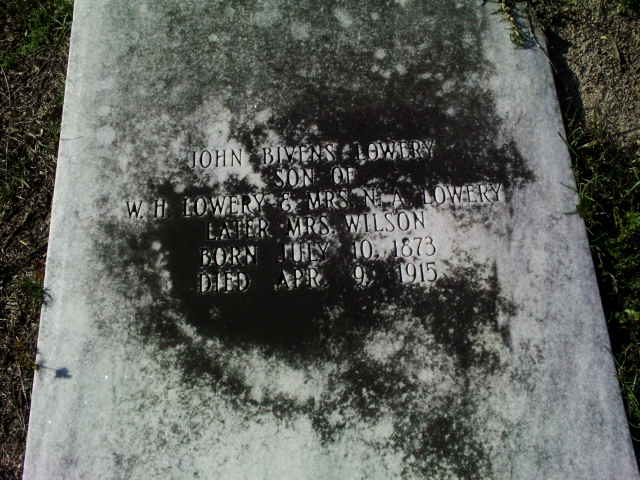 JOHN BIVENS LOWERY
SON OF
W. H. LOWERY & MRS. N. A. LOWERY
LATER MRS. WILSON
BORN JULY 10, 1873
DIED APR. 9, 1915